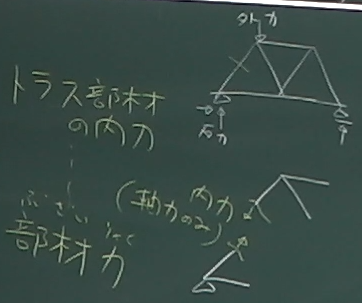 外力
トラス部材
の内力
反力
ぶざいりょく
部材力
内力
(軸力のみ)